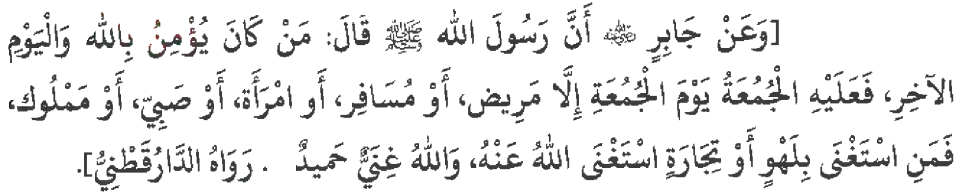 [وَعَنْ جَابِرٍ ﵁ أَنَّ رَسُولَ الله ﷺ قَالَ: مَنْ كَانَ يُؤْمِنُ بِالله وَالْيَوْمِ
الآخِرِ، فَعَلَيْهِ الْجُمُعَةُ يَوْمَ الْجُمُعَةِ إِلَّا مَرِيض، أَوْ مُسَافِر، أَو امْرَأَة، أَوْ صَبِيّ، أَوْ مَمْلُوك،
فَمَنِ اسْتَغْنَى بِلَهْوٍ أَوْ تِجَارَةٍ اسْتَغْنَى اللهُ عَنْهُ، وَاللهُ غَنِيٌّ حَمِيدٌ . رَوَاهُ الدَّارُقَطْنِيُّ].